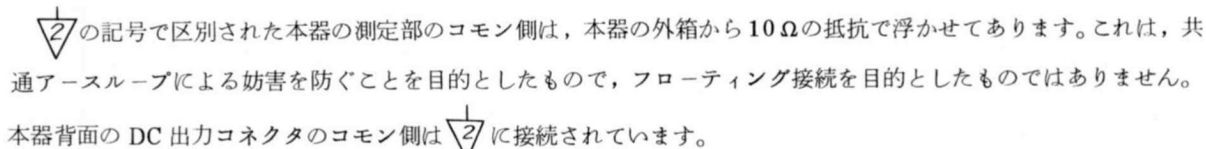 2の記号で区別された本器の測定部のコモン側は，本器の外箱から10Ωの抵抗で浮かせてあります。これは，共
通アースループによる妨害を防ぐことを目的としたもので，フローティング接続を目的としたものではありません。
本器背面の DC 出力コネクタのコモン側は 2 に接続されています。